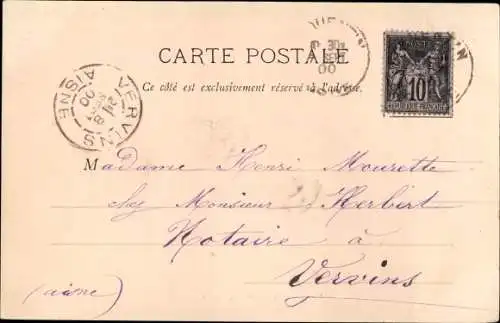 CARTE POSTALE
Ce côté est exclusivement réservé à l'adresse.
10
REPUBLIQUE FRANÇAISE
VERVINS
AISNE
00
Madame Henri Mourette
chez Monsieur Herbert
Notaire à
Vervins
(aisne)